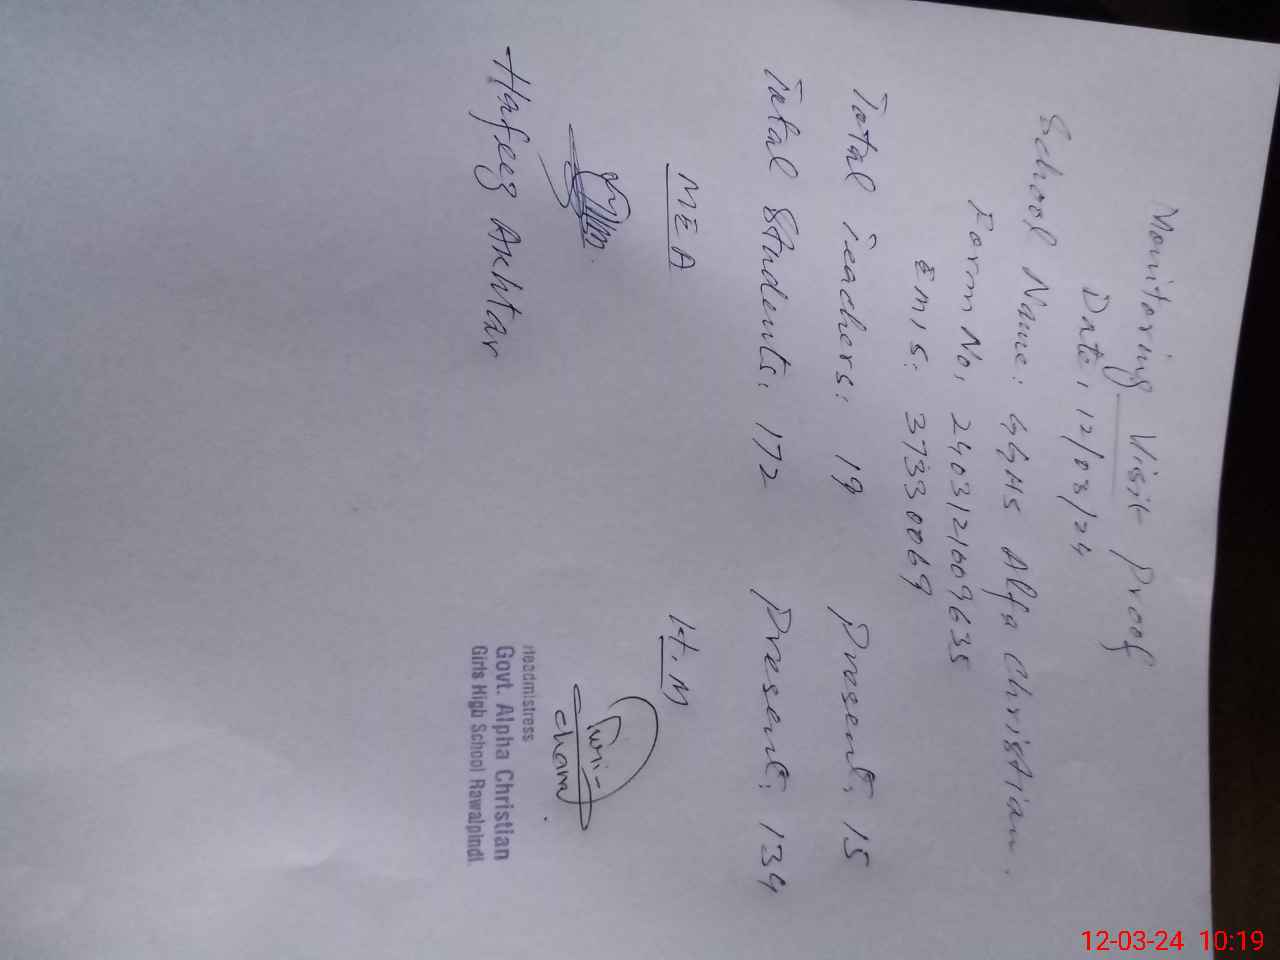 Monitoring Visit Proof
Date: 12/03/24
School Name: GGHS Alfa Christian.
Form No: 2403121609635
EMIS: 37330069
Total Teachers: 19 Present: 15
Total Students: 172 Present: 134
MEA H.M
Hafeez Akhtar
Headmistress
Govt. Alpha Christian
Girls High School Rawalpindi.
12-03-24 10:19